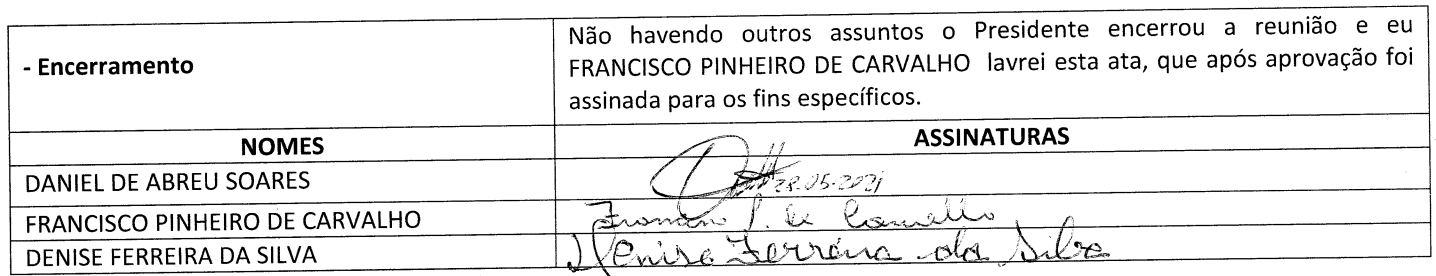 - Encerramento
Não havendo outros assuntos o Presidente encerrou a reunião e eu
FRANCISCO PINHEIRO DE CARVALHO lavrei esta ata, que após aprovação foi
assinada para os fins específicos.
NOMES ASSINATURAS
DANIEL DE ABREU SOARES 28.05.2021
FRANCISCO PINHEIRO DE CARVALHO Francisco P. de Carvalho
DENISE FERREIRA DA SILVA Denise Ferreira da Silva